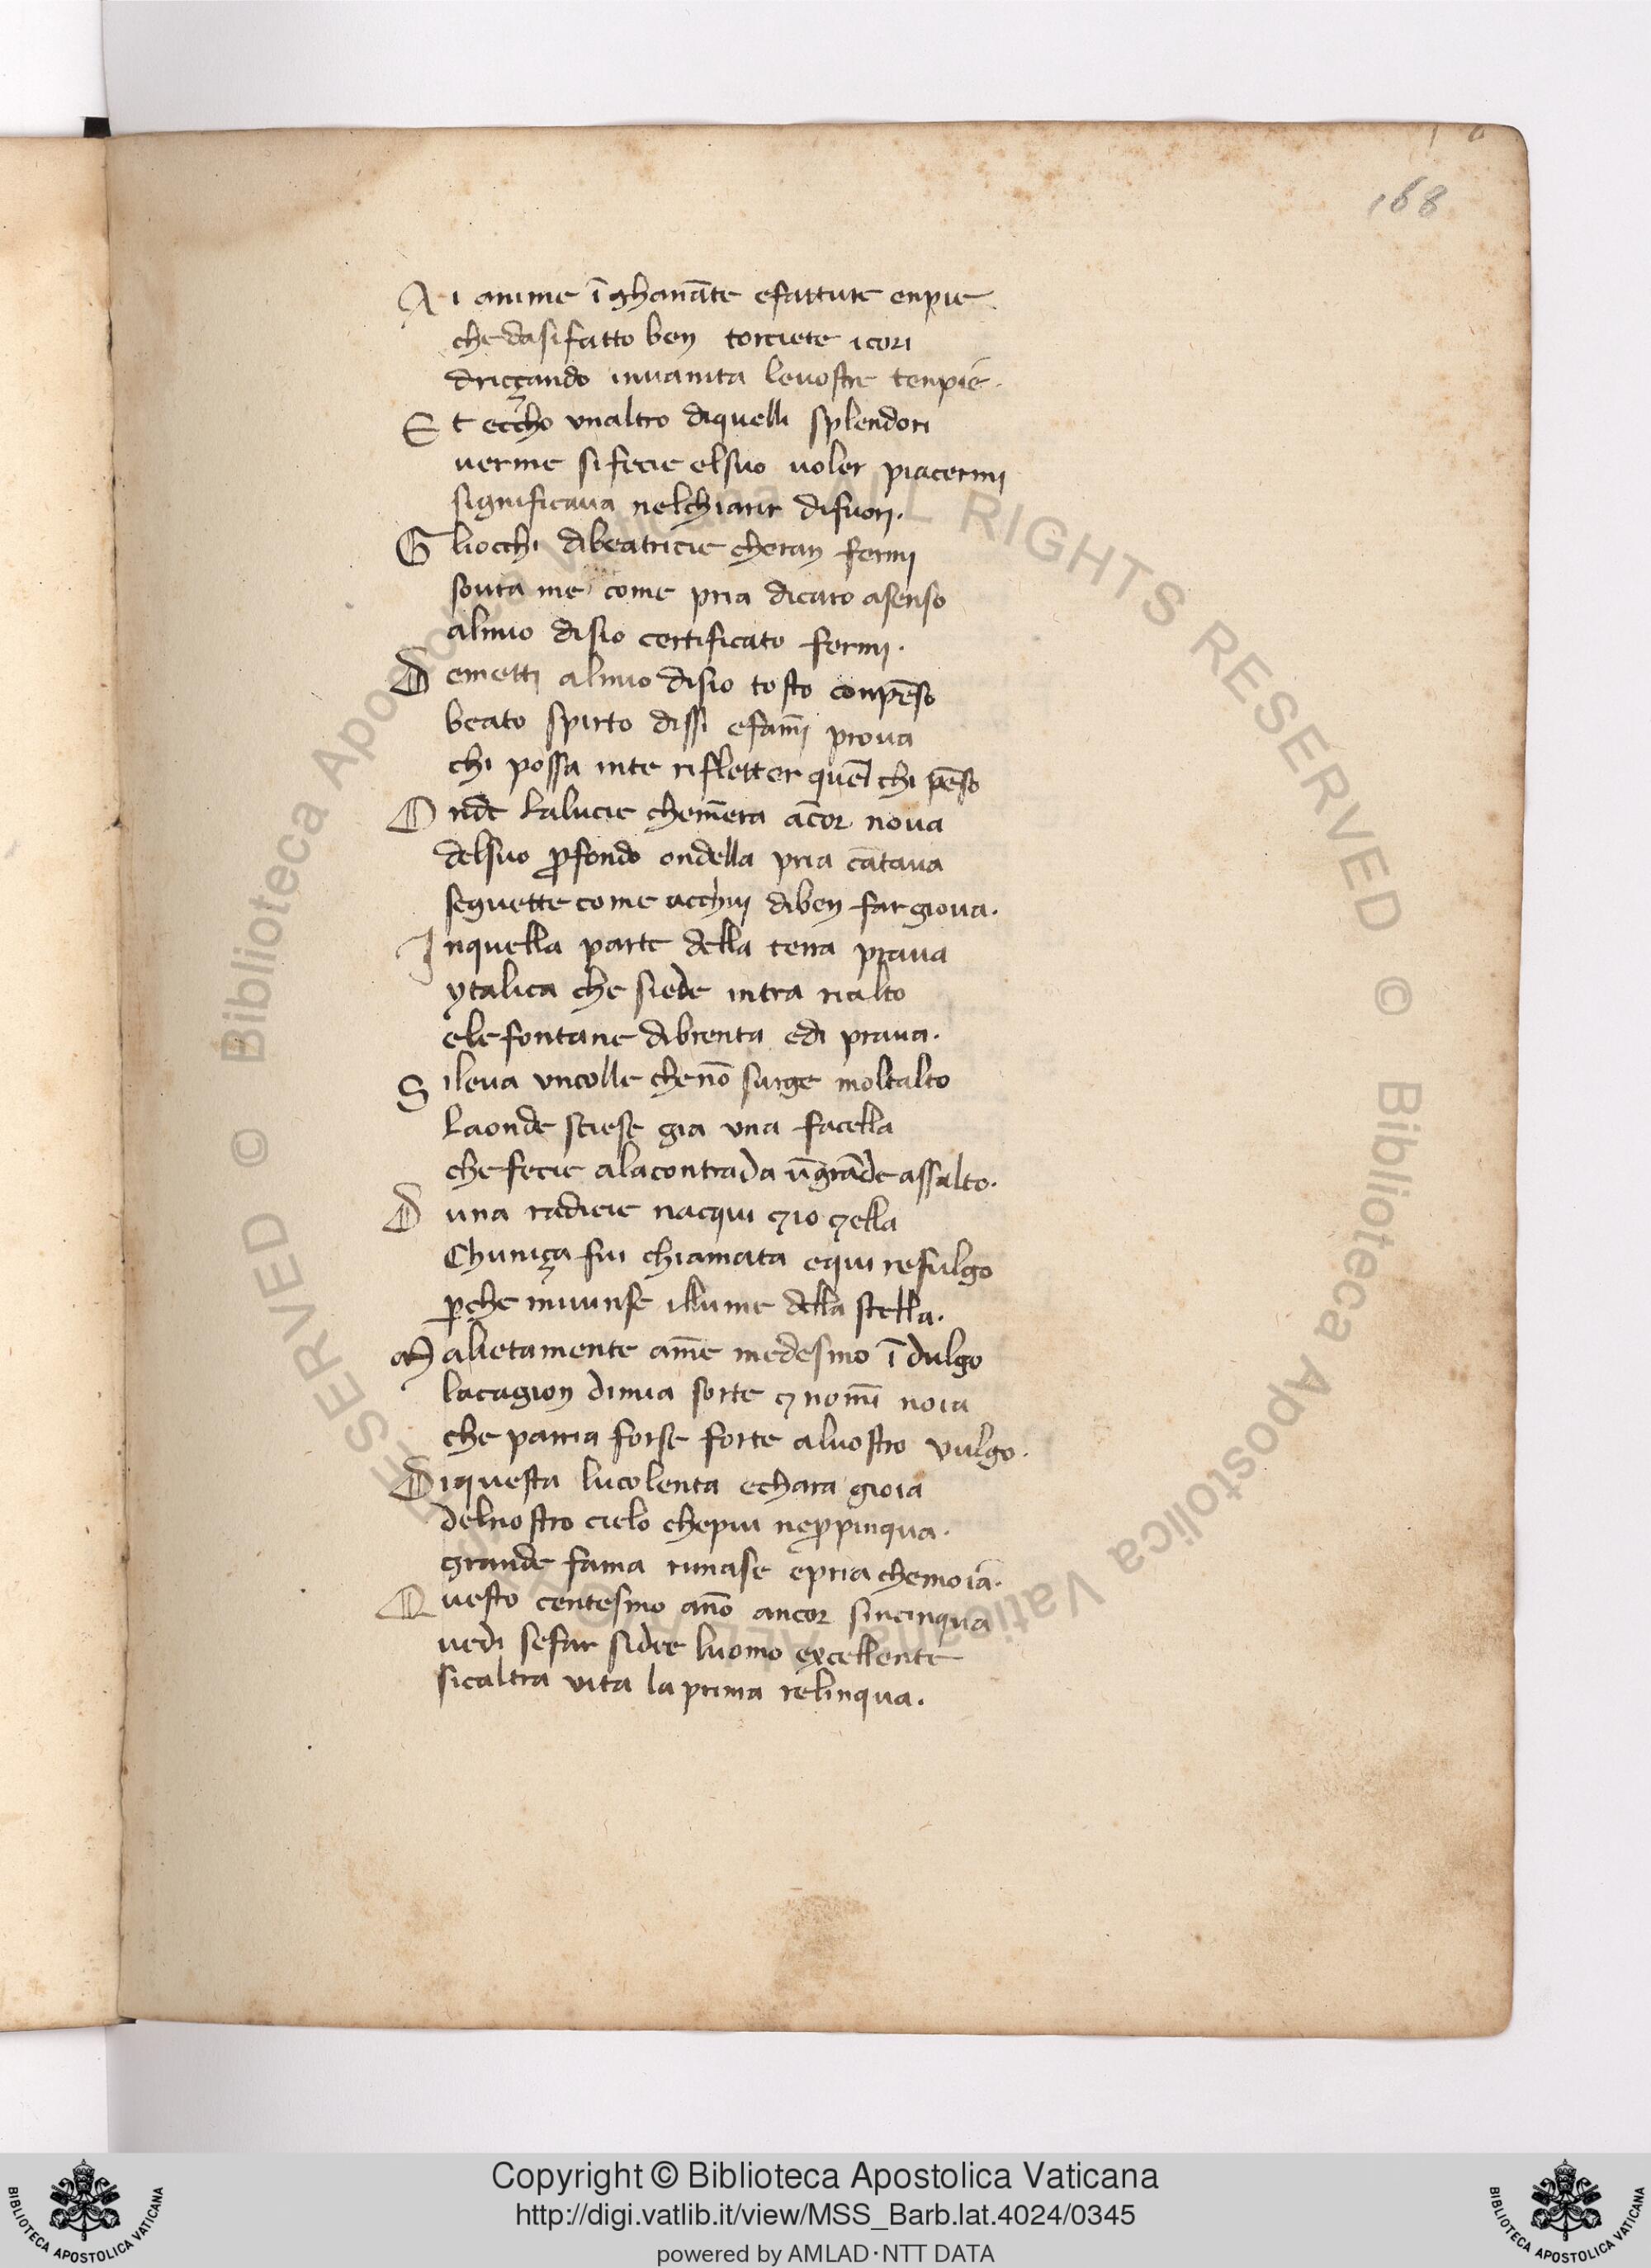 168
Ai anime ī ghanāte efatture enpie
che dasifatto ben torciete icori
driççando inuanita leuostre tenpie.
Et eccho vnaltro diquelli splendori
uerme sifecie elsuo uoler piacermi
significaua nelchiarir difuori.
Gliocchi dibeatricie cheran fermi
soura me come pria dicaro asenso
almio disio certificato fermi.
Demetti almio disio tosto conpēso
beato spirto dissi efāmi proua
chi possa inte rifletter quel chi pēso
Onde lalucie chem̄era ācor noua
delsuo ꝓfondo ondella pria cātaua
seguette come acchui diben far gioua.
Inquella parte della terra praua
ytalica che siede intra rialto
ele fontane dibrenta edi praua.
Sileua vncolle chenō surge moltalto
laonde sciese gia vna facella
che fecie alacontrada ū grāde assalto.
Duna radicie nacqui ⁊io ⁊ella
Chuniça fui chiamata equi refulgo
ꝑche miuinse illume della stella.
Malietamente am̄e medesmo ī dulgo
lacagion dimia sorte ⁊ nōmi noia
che parria forse forte aluostro vulgo.
Diquesta luculenta echara gioia
delnostro cielo chepiu neꝓpinqua.
grande fama rimase epria chemoia.
Questo centesmo āno ancor sincinqua
uedi sefar sidee luomo excellente
sicaltra vita la prima relinqua.
Copyright © Biblioteca Apostolica Vaticana
http://digi.vatlib.it/view/MSS_Barb.lat.4024/0345
powered by AMLAD·NTT DATA
BIBLIOTECA APOSTOLICA VATICANA
BIBLIOTECA APOSTOLICA VATICANA